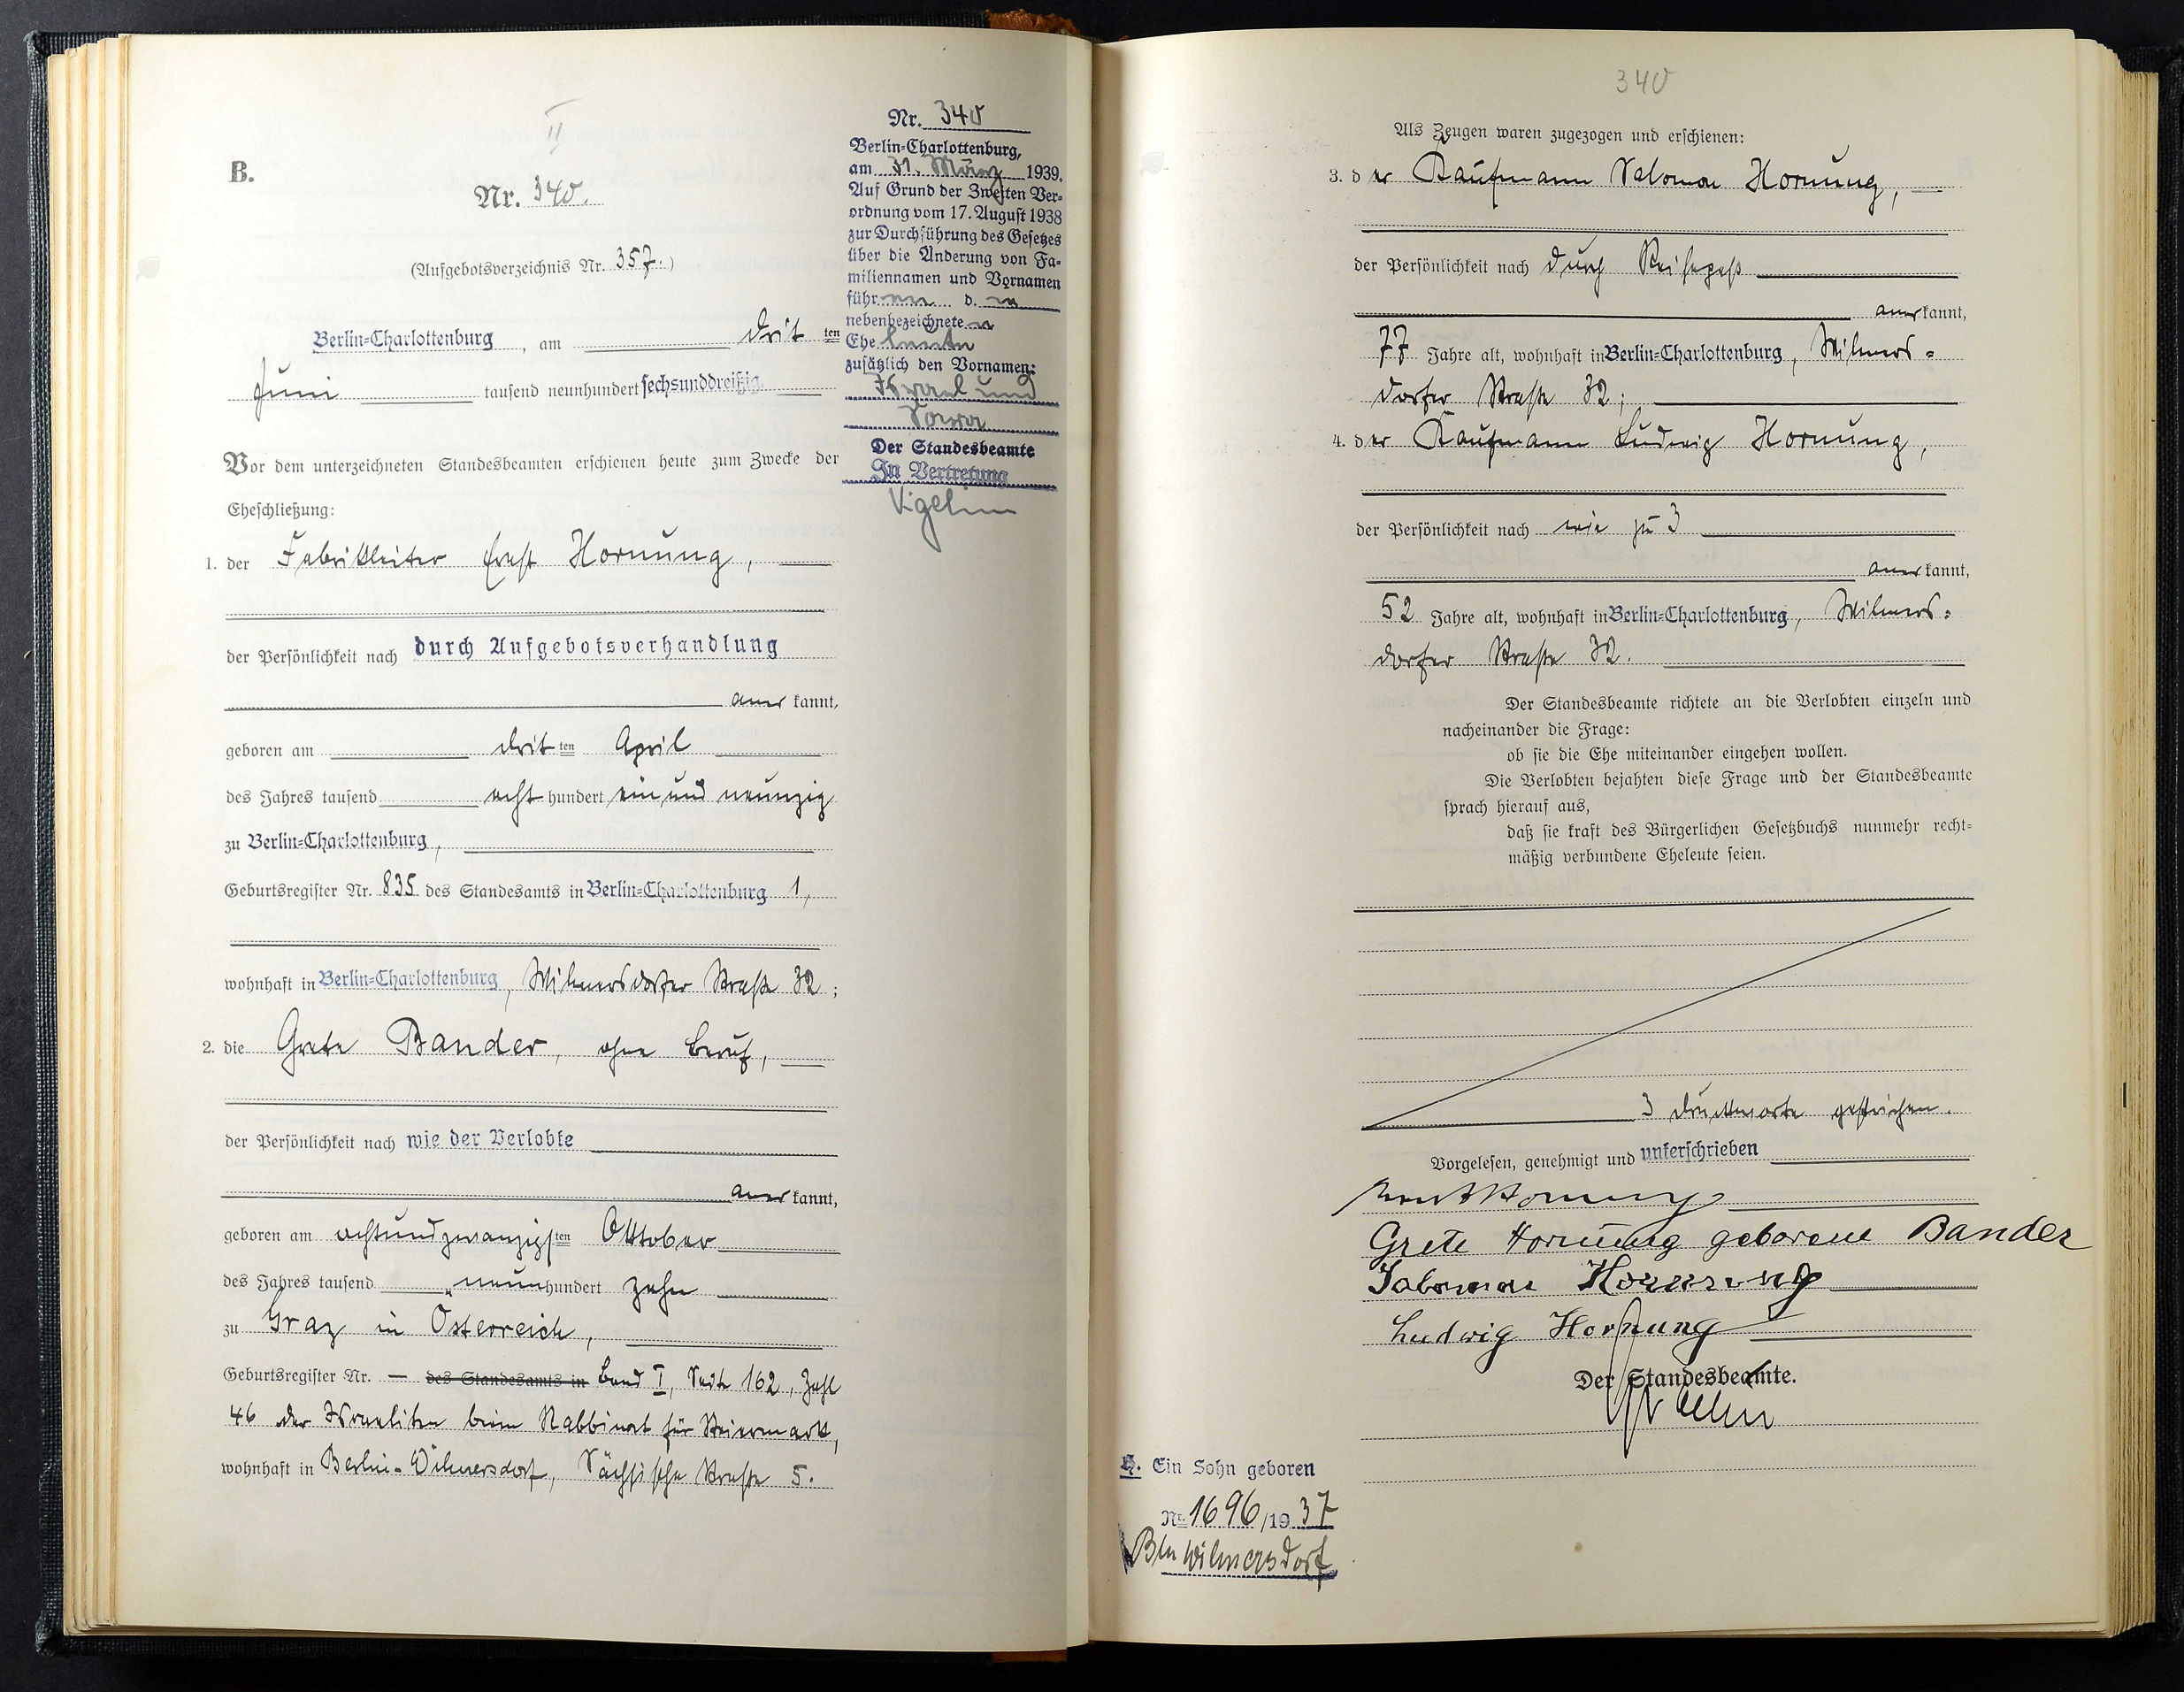 II
B.
Nr. 340.
(Aufgebotsverzeichnis Nr. 357.)
Berlin=Charlottenburg, am drit ten
Juni tausend neunhundert sechsunddreißig.
Vor dem unterzeichneten Standesbeamten erschienen heute zum Zwecke der
Eheschließung:
1. der Fabrikleiter Ernst Hornung,
der Persönlichkeit nach durch Aufgebotsverhandlung
aner kannt,
geboren am drit ten April
des Jahres tausend acht hundert ein und neunzig
zu Berlin=Charlottenburg,
Geburtsregister Nr. 835 des Standesamts in Berlin=Charlottenburg 1,
wohnhaft in Berlin=Charlottenburg, Wilmersdorfer Straße 32;
2. die Grete Bander, ohne Beruf,
der Persönlichkeit nach wie der Verlobte
aner kannt,
geboren am achtundzwanzigsten Oktober
des Jahres tausend neun hundert zehn
zu Graz in Österreich,
Geburtsregister Nr. — des Standesamts in Band I, Seite 162, Zahl
46 der Israeliten beim Rabbinat für Steiermark,
wohnhaft in Berlin-Wilmersdorf, Sächsische Straße 5.
Nr. 340
Berlin=Charlottenburg,
am 31. März 1939.
Auf Grund der Zweiten Ver=
ordnung vom 17. August 1938
zur Durchführung des Gesetzes
über die Änderung von Fa=
miliennamen und Vornamen
führen d. ie
nebenbezeichneten
Eheleute
zusätzlich den Vornamen:
Israel und
Sara
Der Standesbeamte
In Vertretung
340
Als Zeugen waren zugezogen und erschienen:
3. der Kaufmann Salomon Hornung,
der Persönlichkeit nach durch Reisepaß
aner kannt,
77 Jahre alt, wohnhaft in Berlin=Charlottenburg, Wilmers=
dorfer Straße 32;
4. der Kaufmann Ludwig Hornung,
der Persönlichkeit nach wie zu 3
aner kannt,
52 Jahre alt, wohnhaft in Berlin=Charlottenburg, Wilmers=
dorfer Straße 32.
Der Standesbeamte richtete an die Verlobten einzeln und
nacheinander die Frage:
ob sie die Ehe miteinander eingehen wollen.
Die Verlobten bejahten diese Frage und der Standesbeamte
sprach hierauf aus,
daß sie kraft des Bürgerlichen Gesetzbuchs nunmehr recht=
mäßig verbundene Eheleute seien.
3 Druckworte gestrichen.
Vorgelesen, genehmigt und unterschrieben
Ernst Hornung
Grete Hornung geborene Bander
Salomon Hornung
Ludwig Hornung
Der Standesbeamte.
H. Ein Sohn geboren
Nr. 1696/1937
Bln Wilmersdorf